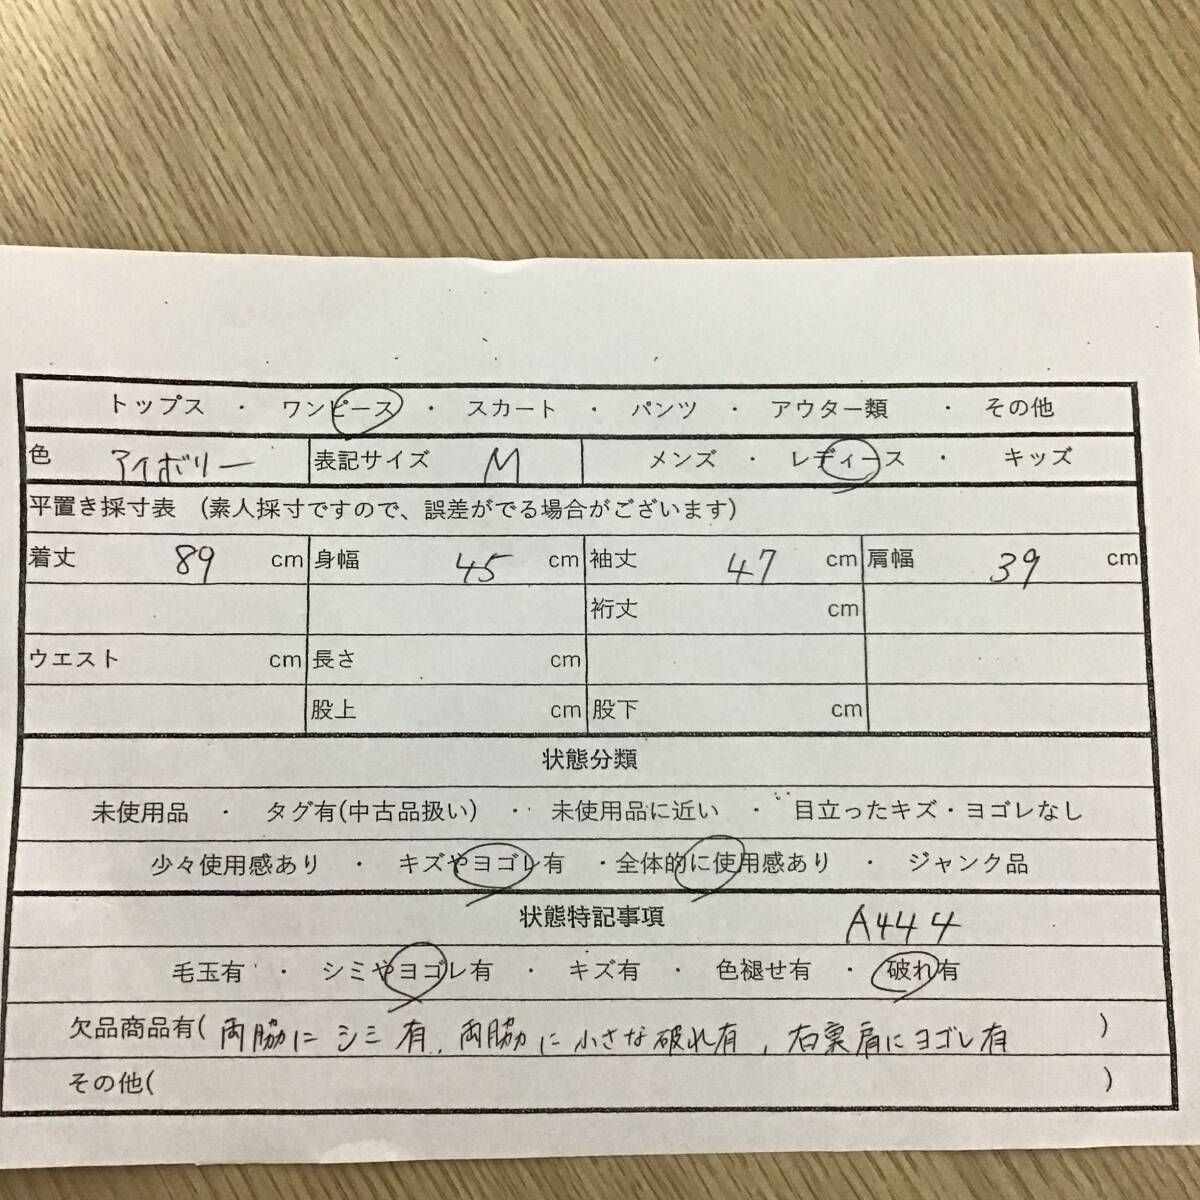 トップス ・ ワンピース ・ スカート ・ パンツ ・ アウター類 ・ その他
色 アイボリー 表記サイズ M メンズ ・ レディース ・ キッズ
平置き採寸表 (素人採寸ですので、誤差がでる場合がございます)
着丈 89 cm 身幅 45 cm 袖丈 47 cm 肩幅 39 cm
裄丈 cm
ウエスト cm 長さ cm
股上 cm 股下 cm
状態分類
未使用品 ・ タグ有(中古品扱い) ・ 未使用品に近い ・ 目立ったキズ・ヨゴレなし
少々使用感あり ・ キズやヨゴレ有 ・全体的に使用感あり ・ ジャンク品
状態特記事項 A444
毛玉有 ・ シミやヨゴレ有 ・ キズ有 ・ 色褪せ有 ・ 破れ有
欠品商品有( 両脇にシミ有、両脇に小さな破れ有、右裏肩にヨゴレ有 )
その他( )